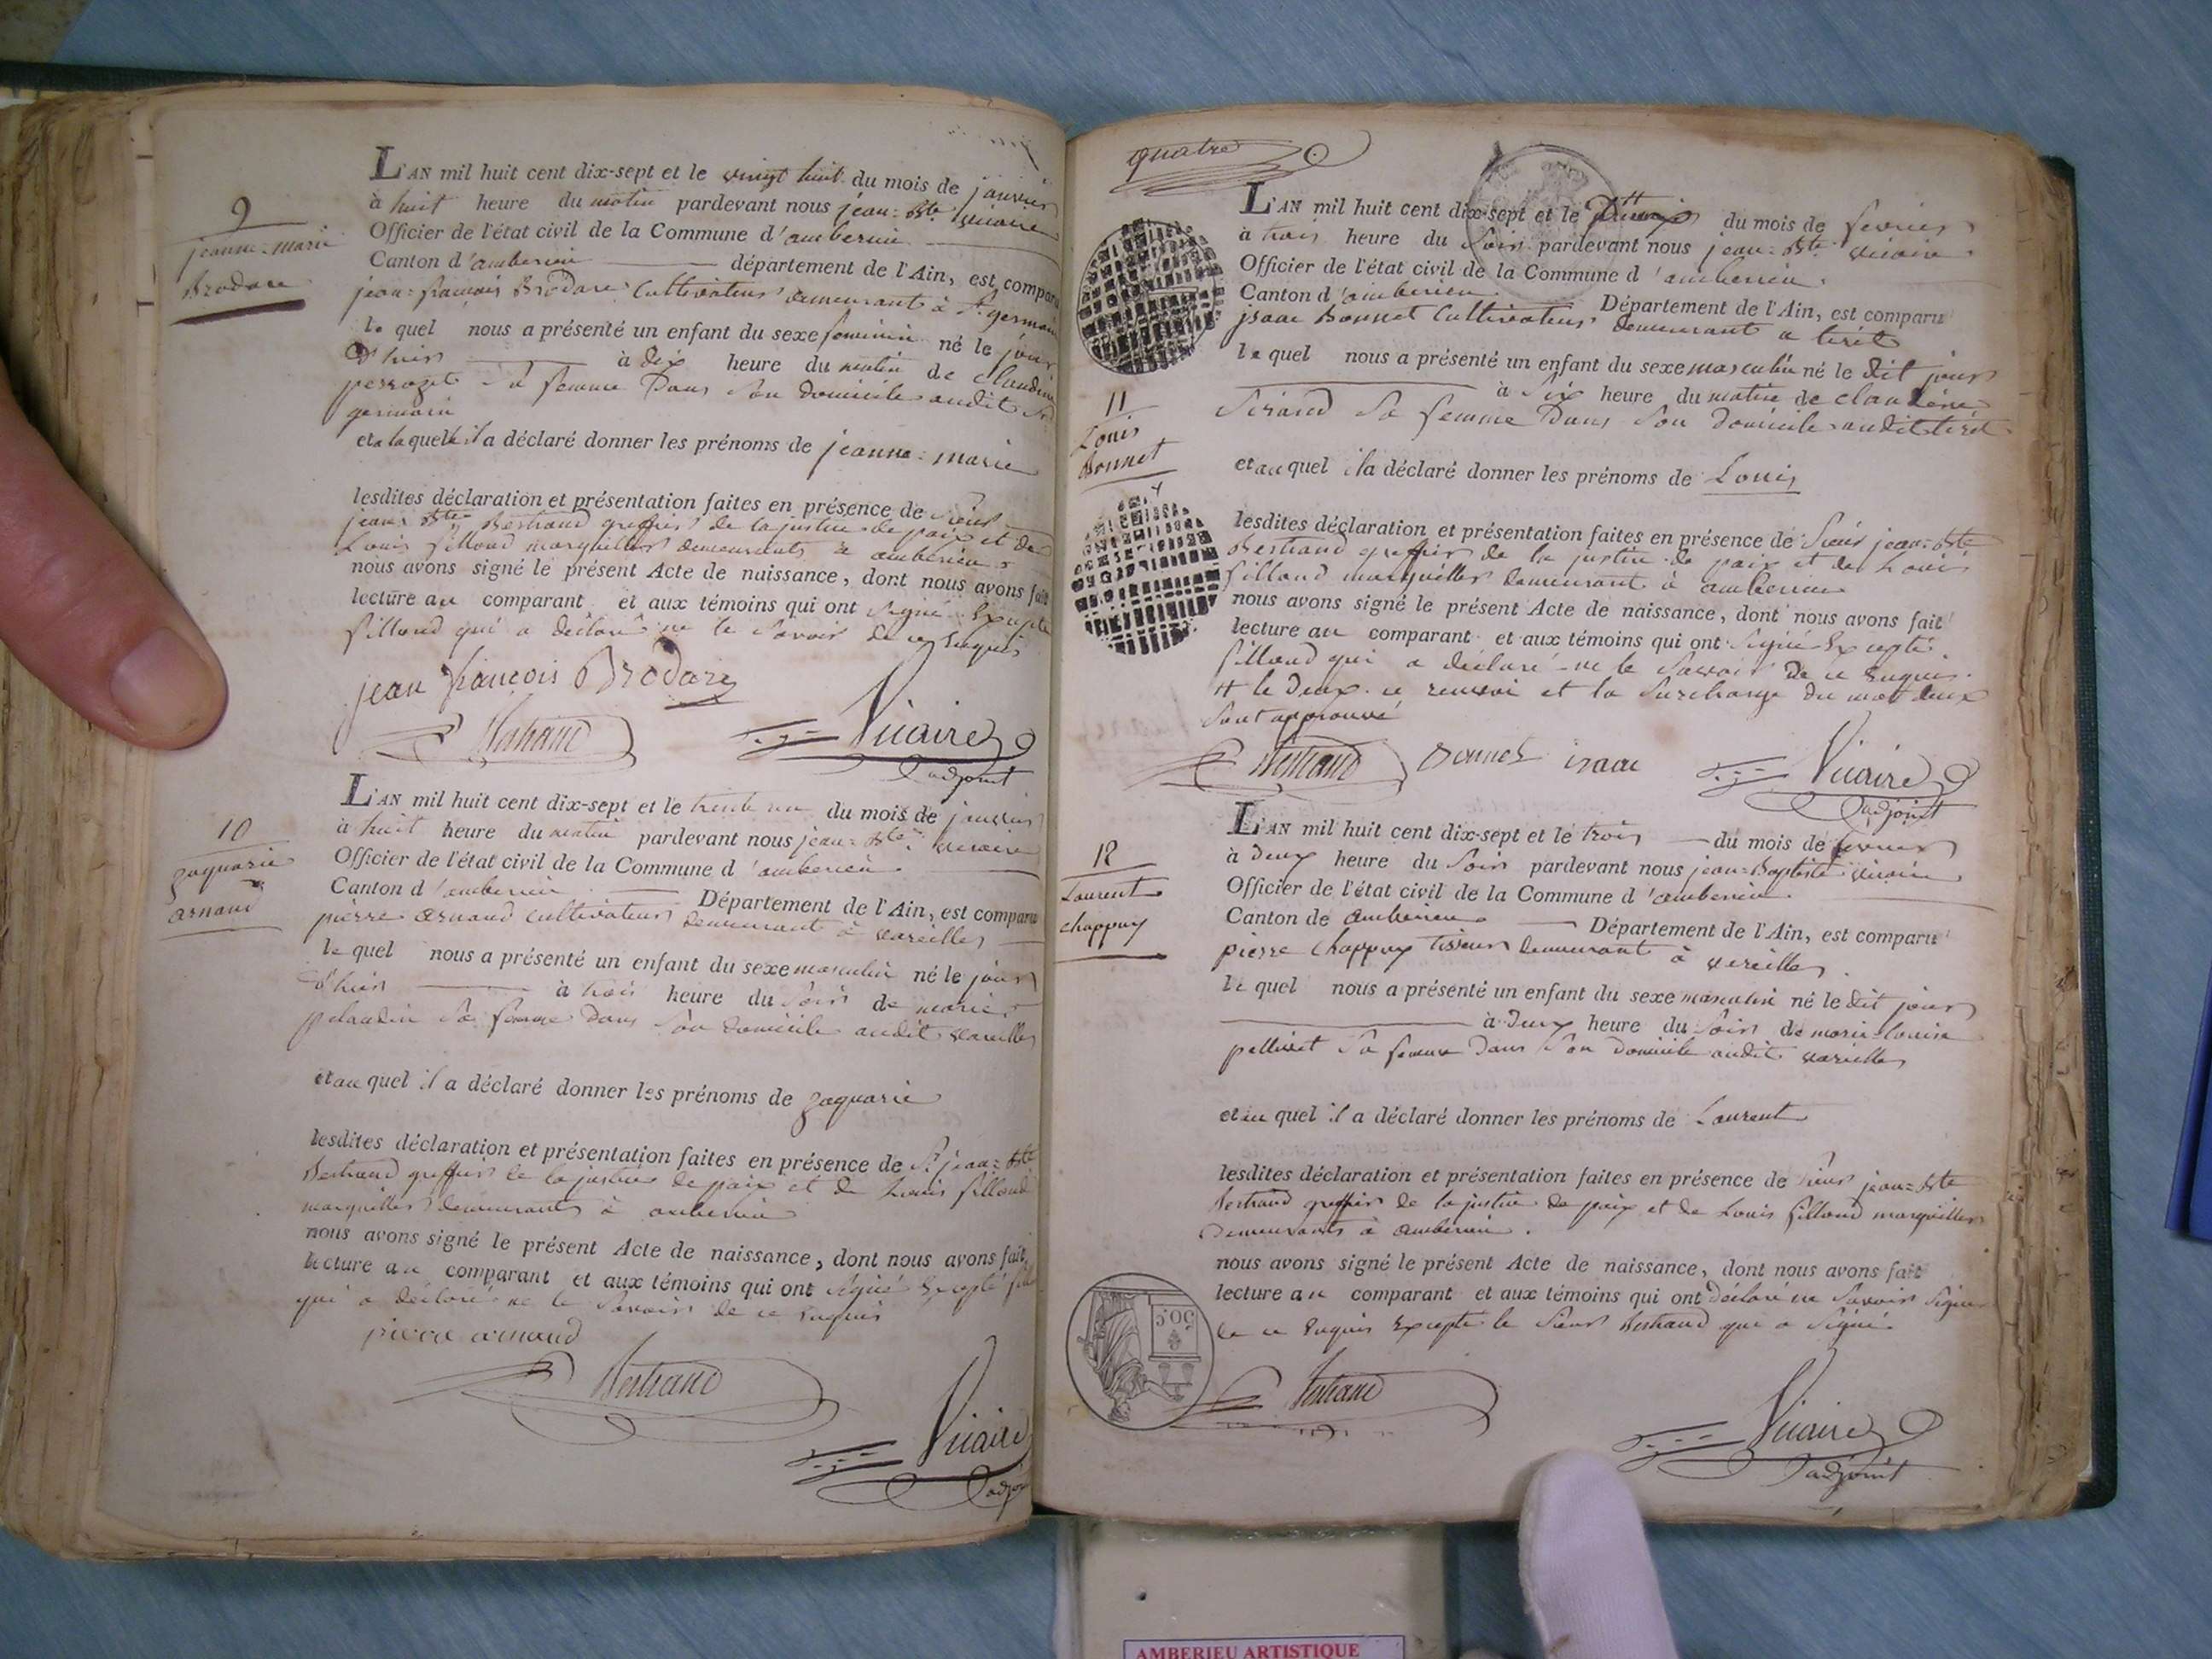 9
jeanne-marie
Brodare
L'AN mil huit cent dix-sept et le vingt huit du mois de janvier
à huit heure du matin pardevant nous jean-Bte vicaire
Officier de l'état civil de la Commune d'amberieu
Canton d'amberieu département de l'Ain, est comparu
jean-francois Brodare Cultivateur demeurant à St germain
le quel nous a présenté un enfant du sexe feminin né le jour
d'hier à dix heure du matin de claudine
perrozet sa femme Dans son domicile audit St
germain
et a laquelle il a déclaré donner les prénoms de jeanne-marie
lesdites déclaration et présentation faites en présence de sieur
jean-Bte Bertrand greffier de la justice de paix et de
Louis filloud marguillier demeurants à amberieu
nous avons signé le présent Acte de naissance, dont nous avons fait
lecture au comparant et aux témoins qui ont signé Excepté
filloud qui a déclaré ne le savoir de ce Enquis
jean francois Brodare
Bertrand Vicaire
adjoint
10
zaquarie
arnaud
L'AN mil huit cent dix-sept et le trente un du mois de janvier
à huit heure du matin pardevant nous jean-Bte vicaire
Officier de l'état civil de la Commune d'amberieu
Canton d'amberieu Département de l'Ain, est comparu
pierre arnaud cultivateur demeurant à vareilles
le quel nous a présenté un enfant du sexe masculin né le jour
d'hier à trois heure du soir de marie
pelaudin sa femme dans son domicile audit vareilles
et au quel il a déclaré donner les prénoms de zaquarie
lesdites déclaration et présentation faites en présence de Sr jean-Bte
Bertrand greffier de la justice de paix et de Louis filloud
marguillier demeurants à amberieu
nous avons signé le présent Acte de naissance, dont nous avons fait
lecture au comparant et aux témoins qui ont signé Excepté
qui a déclaré ne le savoir de ce enquis
pierre arnaud
Bertrand
Vicaire
adjoint
quatre
11
Louis
Bonnet
L'AN mil huit cent dix-sept et le du mois de fevrier
à trois heure du soir pardevant nous jean-Bte vicaire
Officier de l'état civil de la Commune d'amberieu
Canton d'amberieu Département de l'Ain, est comparu
isaac Bonnet Cultivateur demeurant a tirét
le quel nous a présenté un enfant du sexe masculin né le dit jour
à six heure du matin de claudine
sirand sa femme Dans son domicile audit tirét
et au quel il a déclaré donner les prénoms de Louis
lesdites déclaration et présentation faites en présence de Sieur jean-Bte
Bertrand greffier de la justice de paix et de Louis
filloud marguillier demeurant à amberieu
nous avons signé le présent Acte de naissance, dont nous avons fait
lecture au comparant et aux témoins qui ont signé Excepté
filloud qui a déclaré ne le savoir de ce Enquis
# le Deux ce renvoi et la surcharge du mot deux
sont approuvé
Bertrand Bonnet isaac Vicaire
adjoint
12
Laurent
chappuy
L'AN mil huit cent dix-sept et le trois du mois de fevrier
à Deux heure du soir pardevant nous jean-Baptiste vicaire
Officier de l'état civil de la Commune d'amberieu
Canton de amberieu Département de l'Ain, est comparu
pierre Chappuy tisseur demeurant à vareilles
le quel nous a présenté un enfant du sexe masculin né le dit jour
à deux heure du soir de marie-louise
pellivet sa femme dans son domicile audit vareilles
et au quel il a déclaré donner les prénoms de Laurent
lesdites déclaration et présentation faites en présence de sieur jean-Bte
Bertrand greffier de la justice de paix et de Louis filloud marguillier
demeurants à amberieu
nous avons signé le présent Acte de naissance, dont nous avons fait
lecture au comparant et aux témoins qui ont déclaré ne savoir signer
de ce Enquis Excepté le sieur Bertrand qui a signé
50 c.
Bertrand
Vicaire
adjoint
AMBERIEU ARTISTIQUE